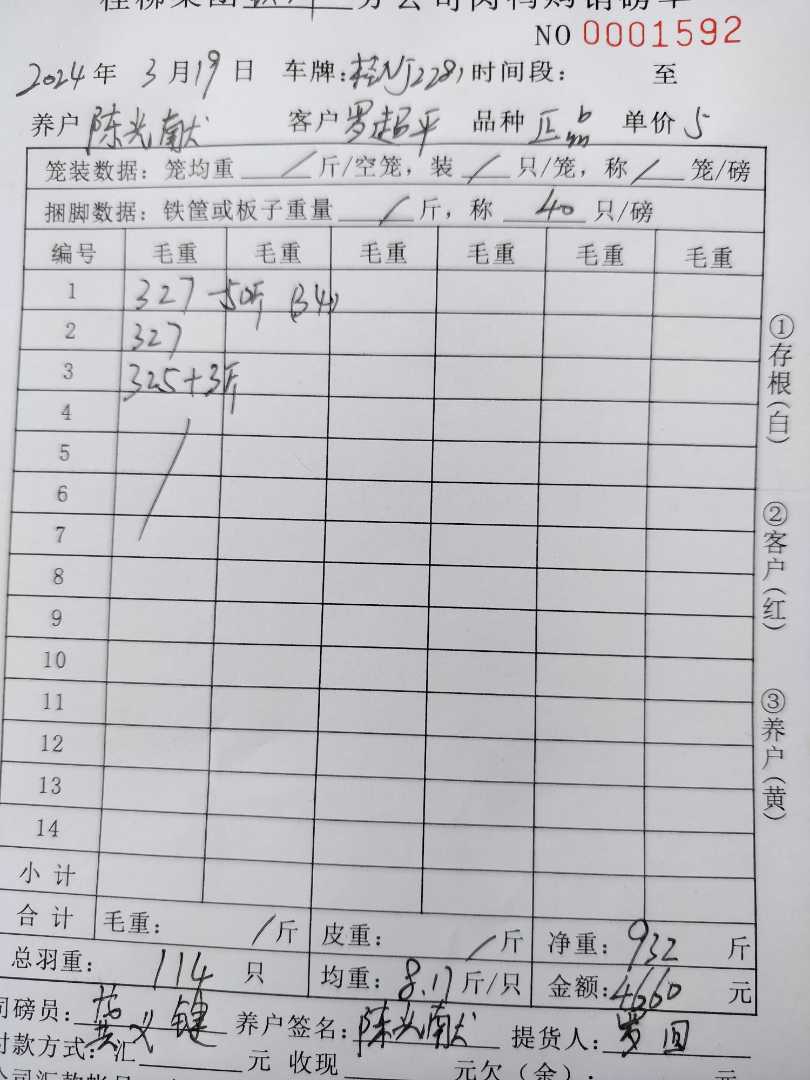 NO 0001592
2024 年 3 月 19 日 车牌:桂NJ2281 时间段: 至
养户 陈光献 客户 罗超平 品种 正品 单价 5
笼装数据: 笼均重 / 斤/空笼, 装 / 只/笼, 称 / 笼/磅
捆脚数据: 铁筐或板子重量 / 斤, 称 40 只/磅
编号 毛重 毛重 毛重 毛重 毛重 毛重
1 327 (34)
2 327
3 325+3斤
4
5
6
7
8
9
10
11
12
13
14
小计
合计 毛重: / 斤 皮重: / 斤 净重: 932 斤
总羽重: 114 只 均重: 8.17 斤/只 金额: 4660 元
司磅员: 黄义键 养户签名: 陈光献 提货人: 罗
付款方式: 汇 元 收现 元欠(余): 元
①存根(白)
②客户(红)
③养户(黄)